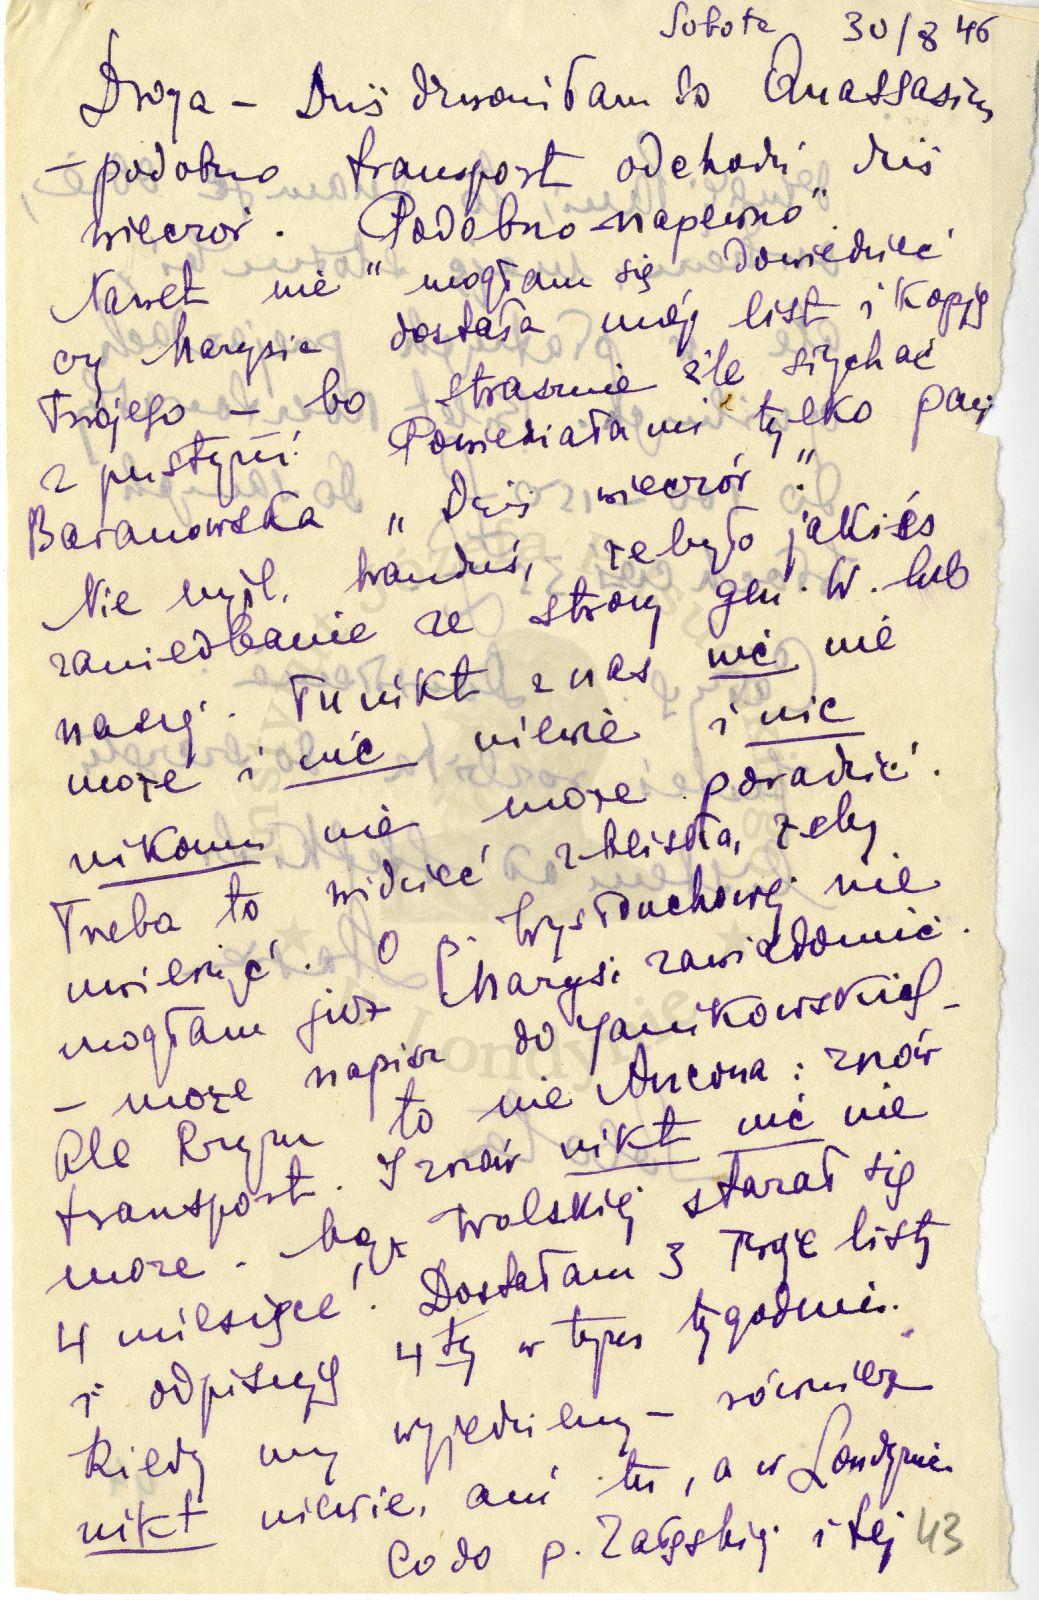 Sobota 30/8 46
Droga – Dziś dzwoniłam do Quassasin
– podobno transport odchodzi dziś
wieczór. "Podobno napewno"
Nawet nie mogłam się dowiedzieć
czy Marysia dostała mój list i kopję
Twojego – bo strasznie źle słychać
z pustyni. Powiedziała mi tylko pani
Baranowska „Dziś wieczór".
Nie myśl, Wanduś, że było jakieś
zaniedbanie ze strony gen. W. lub
naszej. Tu nikt z nas nic nie
może i nic niewie i nic
nikomu nie może poradzić.
Trzeba to widzieć z bliska, żeby
uwierzyć. O p. Wysłouchowej nie
mogłam już Marysi zawiadomić.
– może napisz do Janikowskich –
Ale Rzym to nie Ancona: znów
transport. I znów nikt nic nie
może. Mąż Wolskiej starał się
4 miesiące! Dostałam 3 Twoje listy
i odpisuję 4ty w tym tygodniu.
Kiedy my wyjedziemy – również
nikt niewie, ani tu, a w Londynie.
Co do p. Załęskiej i tej 43
Londynie